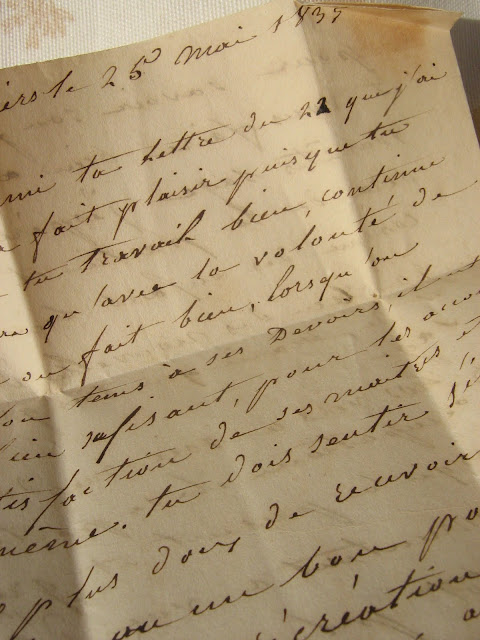 le 25 mai 183
mi ta Lettre du 22 que j'ai
fait plaisir puisque tu
tu travail bien, continue
qu'avec la volonté de
on fait bien, lorsqu'on
tems à ses Devoirs, il
bien sufisant, pour les
tisfaction de ses maitres et
même. tu dois sentir
plus doux de recevoir
ou un bon
récréation